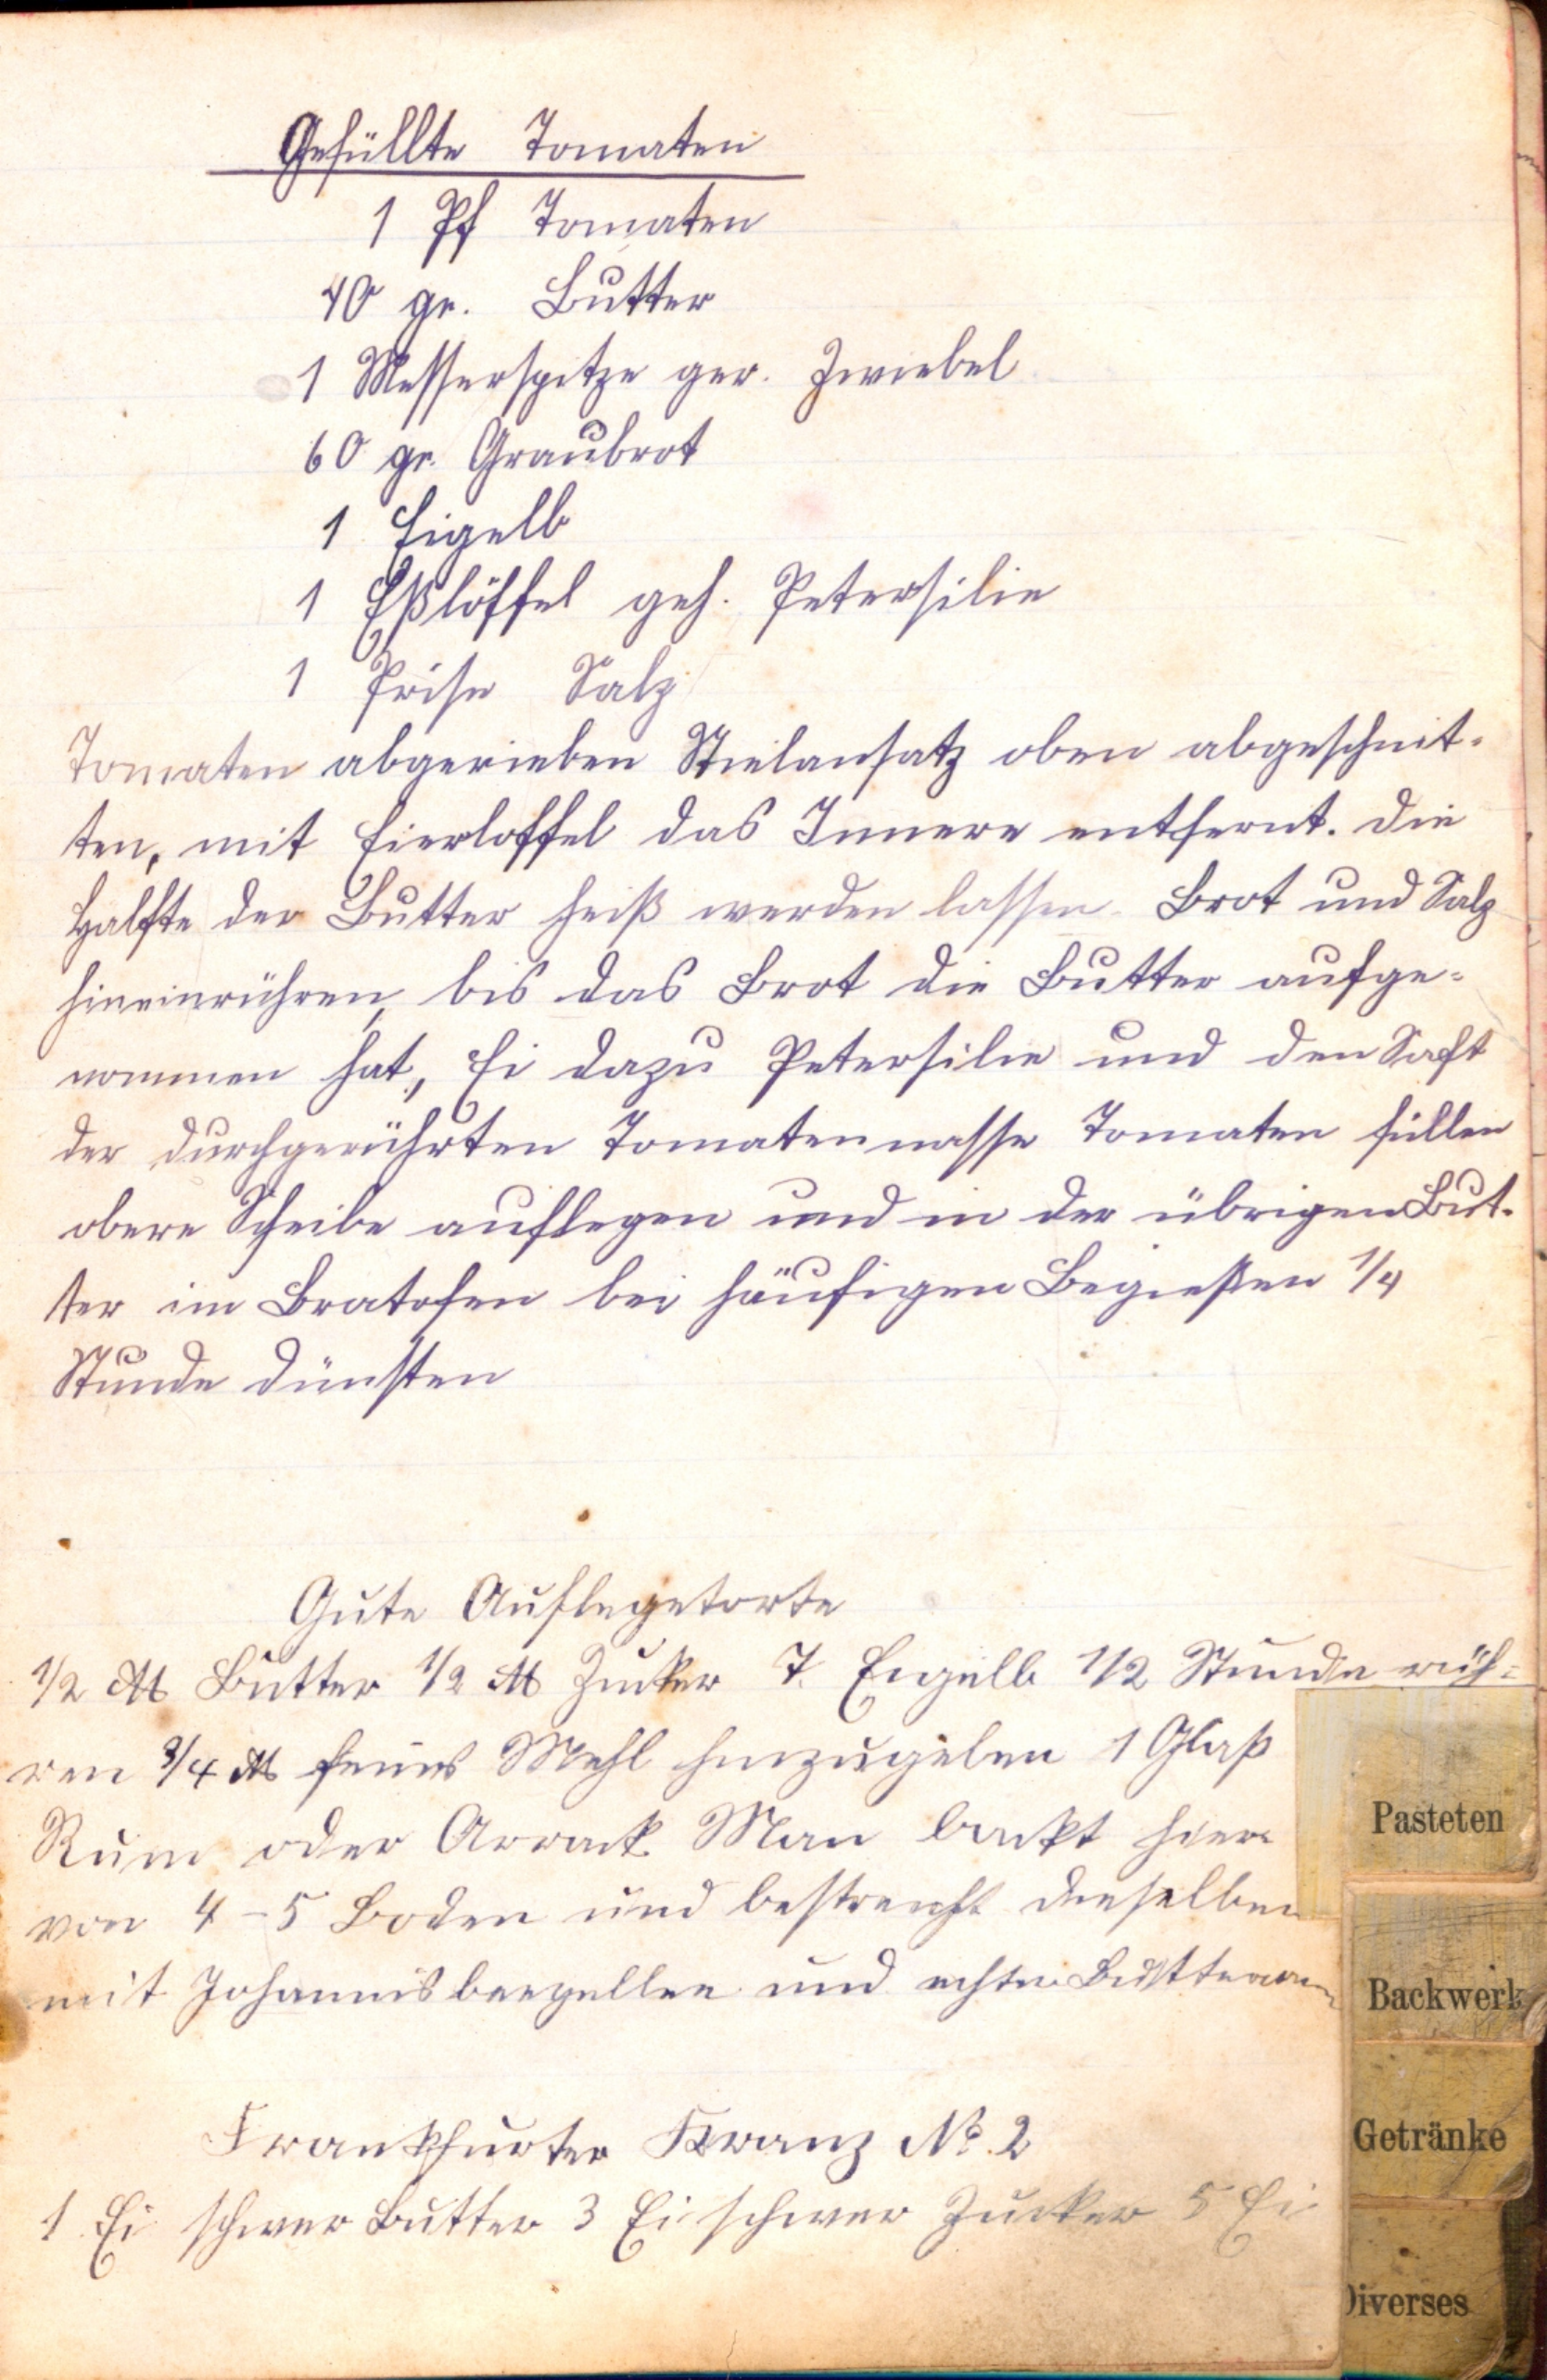 Gefüllte Tomaten
1 Pf Tomaten
40 gr. Butter
1 Messerspitze ger. Zwiebel
60 gr. Graubrot
1 Eigelb
1 Eßlöffel geh. Petersilie
1 Prise Salz
Tomaten abgerieben Stielansatz oben abgeschnit-
ten, mit Eierloffel das Innere entfernt. Die
Halfte der Butter heiß werden lassen. Brot und Salz
hineinrühren, bis das Brot die Butter aufge-
nommen hat, Ei dazu Petersilie und den Saft
der durchgerührten Tomatenmasse Tomaten füllen
obere Scheibe auflegen und in der übrigen But-
ter im Bratofen bei häufigen Begießen 1/4
Stunde dünsten
Gute Auflegetorte
1/2 ℔ Butter 1/2 ℔ Zucker 7. Eigelb 1/2 Stunde rüh-
ren 3/4 ℔ feines Mehl hinzugeben 1 Glaß
Rum oder Arrack Man backt hier
von 4-5 Boden und bestreicht dieselben
mit Johannisbeegellee und
Frankfurter Kranz No. 2
1 Ei schwer Butter 3 Ei schwer Zucker 5 Ei
Pasteten
Backwerk
Getränke
Diverses